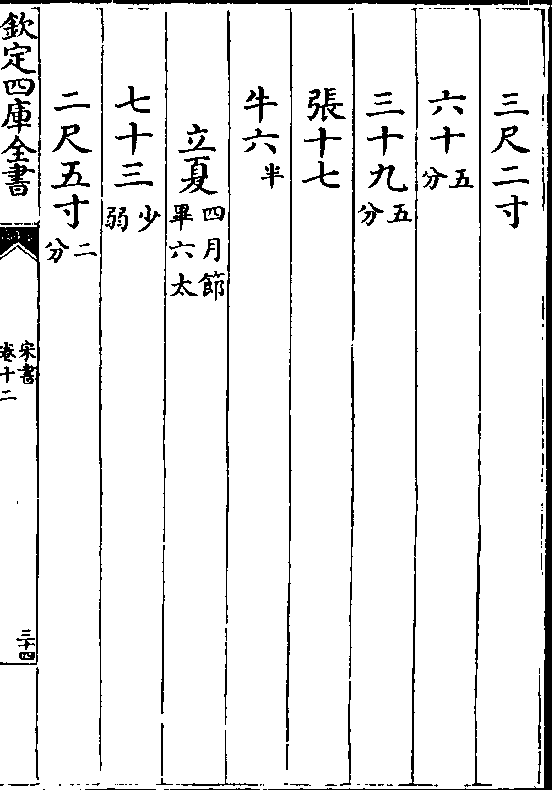 三尺二寸
六十五分
三十九五分
張十七
牛六半
立夏四月節畢六太
七十三少弱
二尺五寸二分
欽定四庫全書
宋書
卷十二
三十四